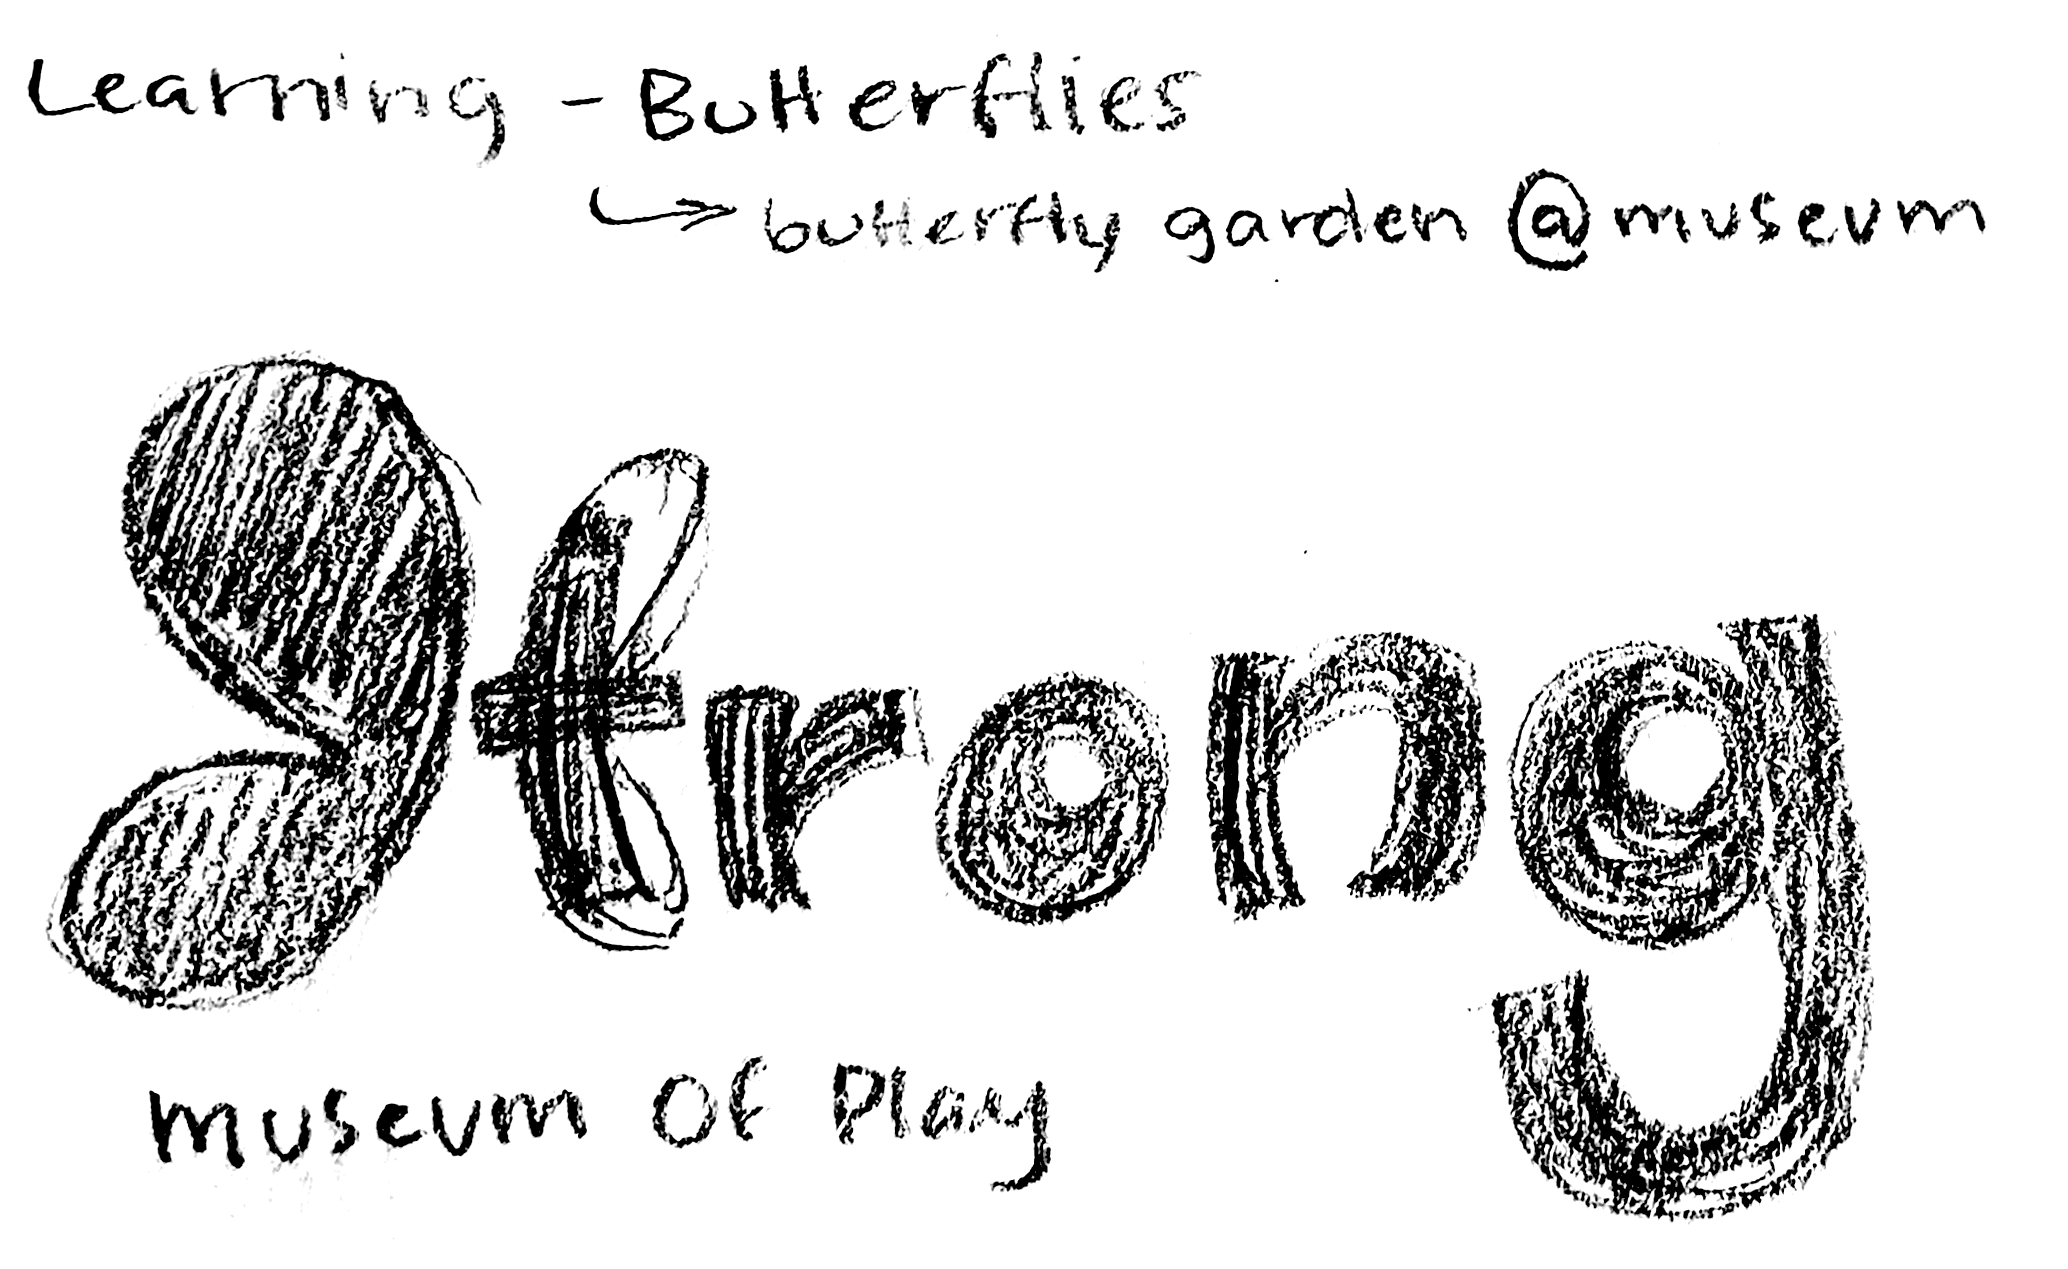 Learning - Butterflies
↳ butterfly garden @ museum
Strong
museum of Play